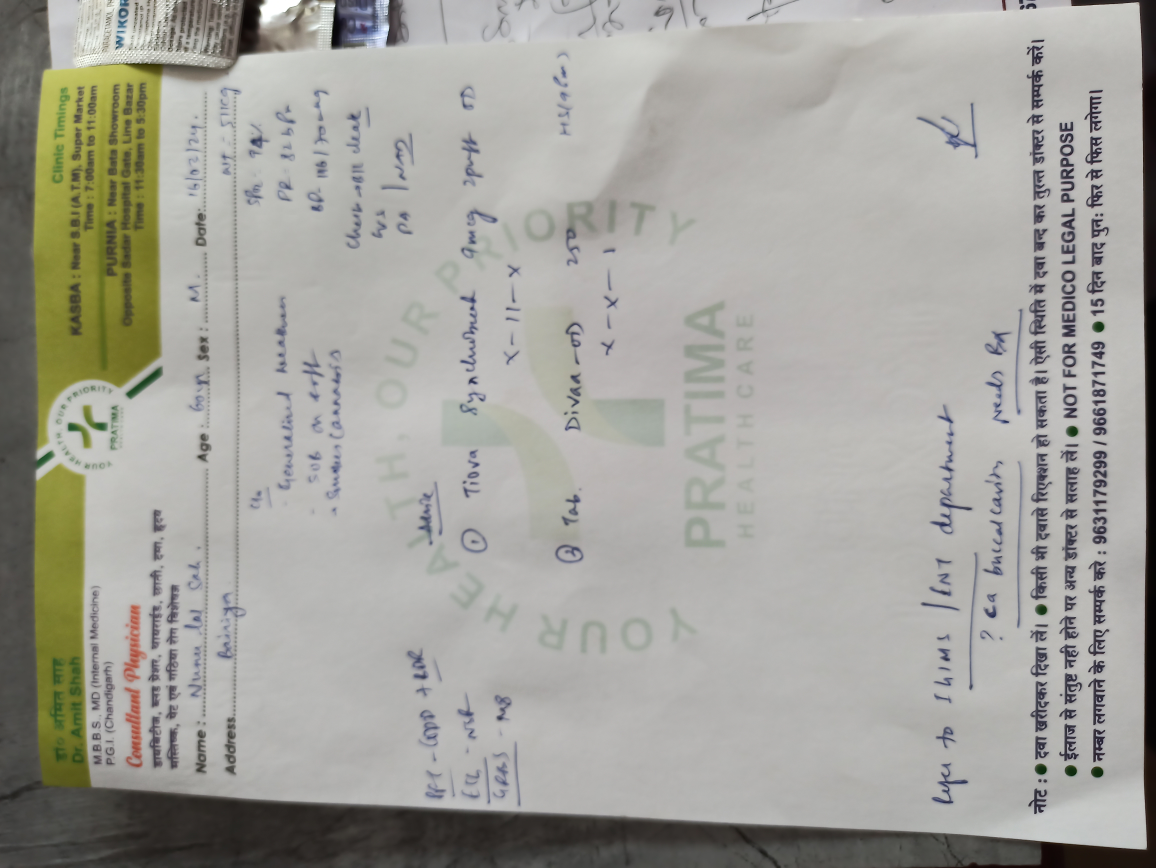 डा० अमित साह
Dr. Amit Shah
M.B.B.S., MD (Internal Medicine)
P.G.I. (Chandigarh)
Consultant Physician
डायबिटीज, ब्लड प्रेशर, थायराईड, छाती, दमा, हृदय
मस्तिष्क, पेट एवं गठिया रोग विशेषज्ञ
YOUR HEALTH, OUR PRIORITY
PRATIMA
Clinic Timings
KASBA : Near S.B.I (A.T.M), Super Market
Time : 7:00am to 11:00am
PURNIA : Near Bata Showroom
Opposite Sadar Hospital Gate, Line Bazar
Time : 11:30am to 5:30pm
Name : Nunu lal Sah. Age : Sex : M. Date: 16/02/24.
Address
- Generalized weakness
- SOB on &off
- Smoker
PR- 82 bpm
Chest → B/L clear
PA | NAD
Advice
① Tiova Synchrobreath 9mcg 2puff OD
X-11-X
② Tab. Divaa-OD 250
X-X-1
YOUR HEALTH, OUR PRIORITY
PRATIMA
HEALTH CARE
Refer to IGIMS / ENT department
? ca buccal cavity needs Bx
नोट : ● दवा खरीदकर दिखा लें। ● किसी भी दवासे रिएक्शन हो सकता है। ऐसी स्थिति में दवा बन्द कर तुरन्त डॉक्टर से सम्पर्क करें।
● ईलाज से संतुष्ट नही होने पर अन्य डॉक्टर से सलाह लें। ● NOT FOR MEDICO LEGAL PURPOSE
● नम्बर लगवाने के लिए सम्पर्क करे : 9631179299 / 9661871749 ● 15 दिन बाद पुनः फिर से फिस लगेगा।